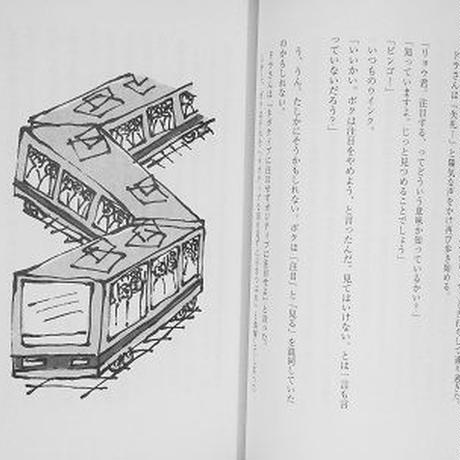 ドラさんは「失礼ー」と陽気な声をかけ再び歩き始める。
「リョウ君、注目する、ってどういう意味か知っているかい？」
「知っていますよ。じっと見つめることでしょう」
「ビンゴー！」
いつものインク。
「いいかい。ボクは注目をやめよう、と言ったんだ。見てはいけない、とは一言も言
っていないだろう？」
う、うん。たしかにそうかもしれない。ボクは「注目」と「見る」を混同していた
のかもしれない。
ドラさんは「ネガティブに注目せずポジティブに注目せよ」と言った。